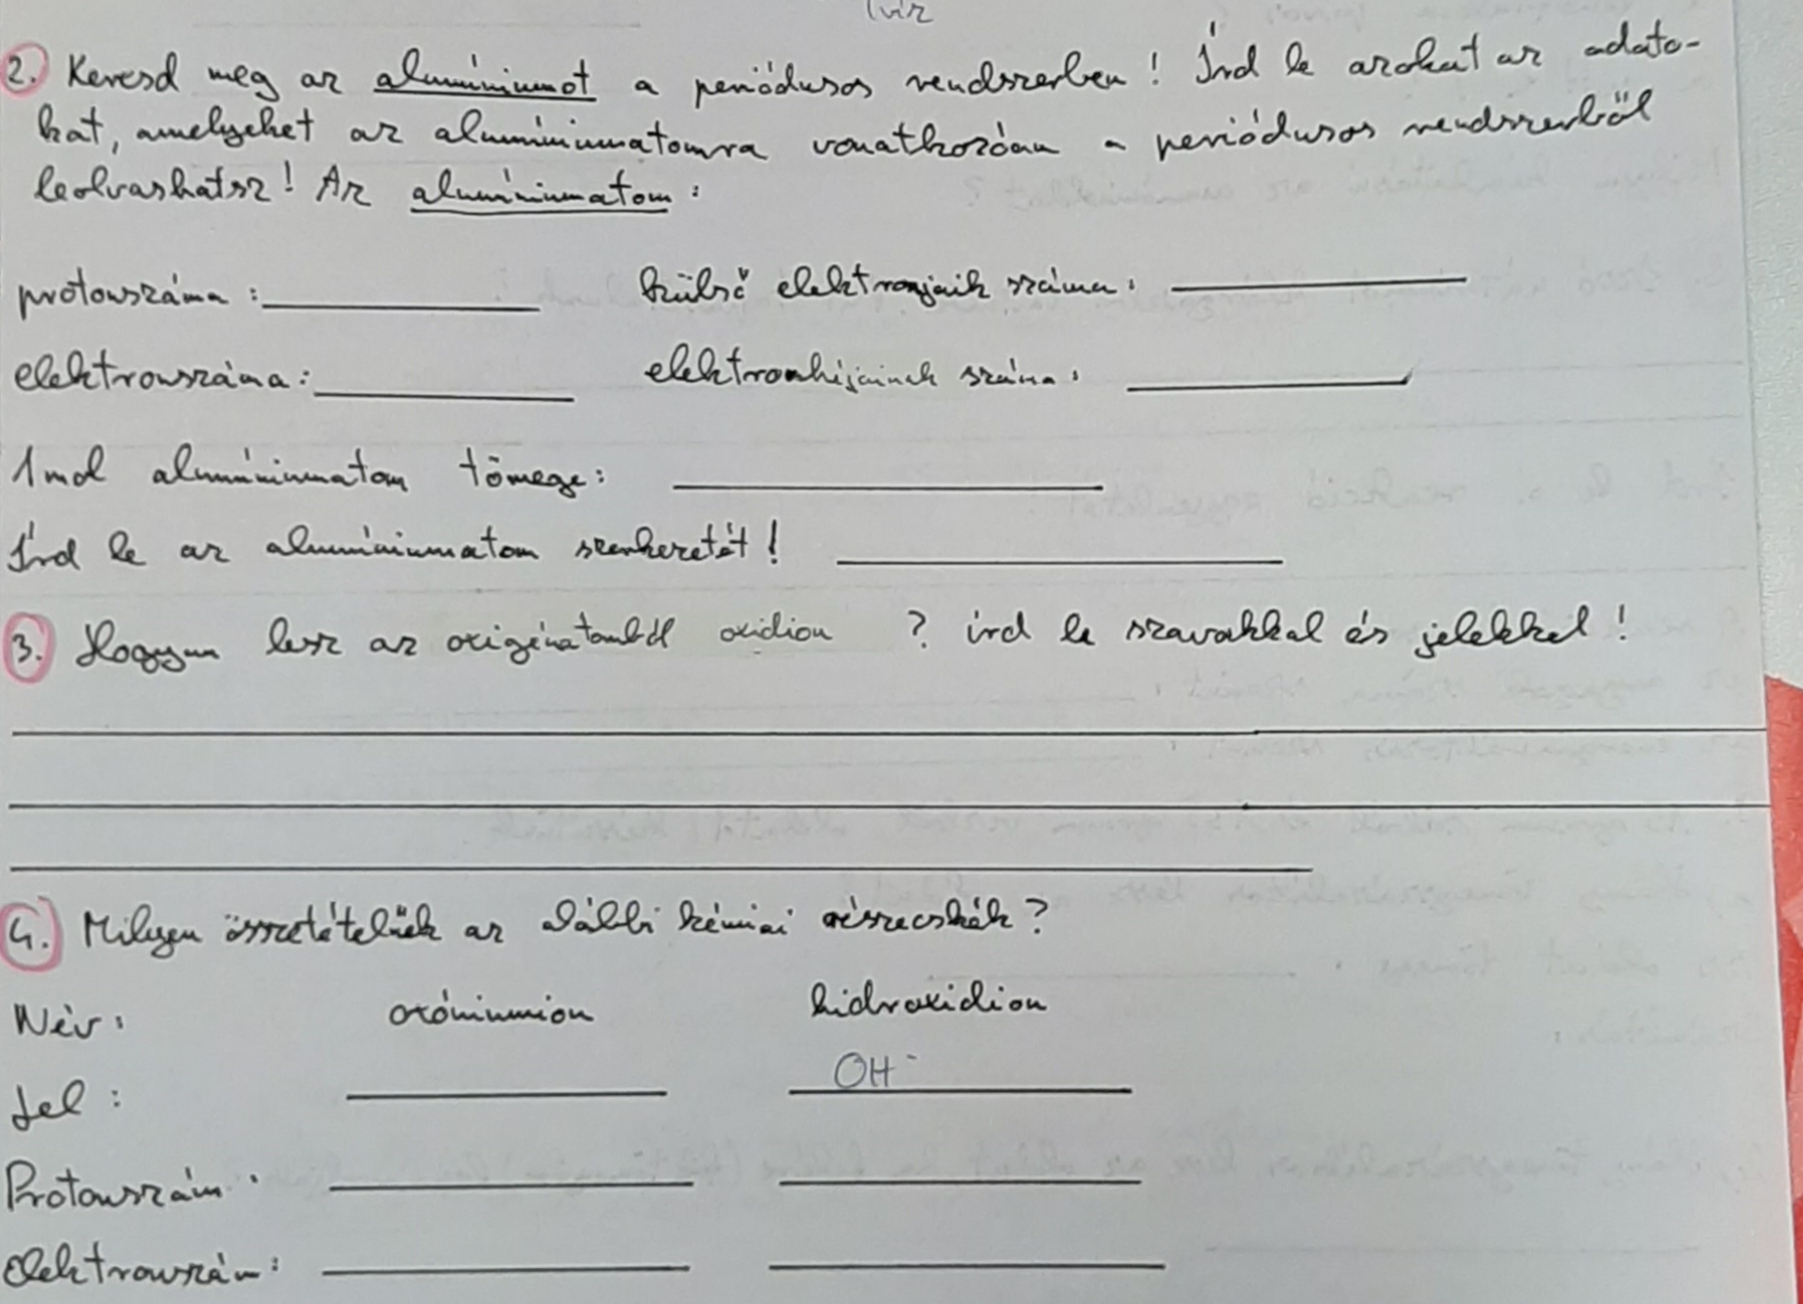 víz
2. Keresd meg az alumíniumot a periódusos rendszerben! Írd le azokat az adato-
kat, amelyeket az alumíniumatomra vonatkozóan a periódusos rendszerből
leolvashatsz! Az alumíniumatom:
protonszáma: külső elektronjaik száma:
elektronszáma: elektronhéjainak száma:
1 mol alumíniumatom tömege:
Írd le az alumíniumatom szerkezetét!
3. Hogyan lesz az oxigénatomból oxidion ? írd le szavakkal és jelekkel!
4. Milyen összetételűek az alábbi kémiai részecskék?
Név: oxóniumion hidroxidion
Jel: OH⁻
Protonszám:
Elektronszám: